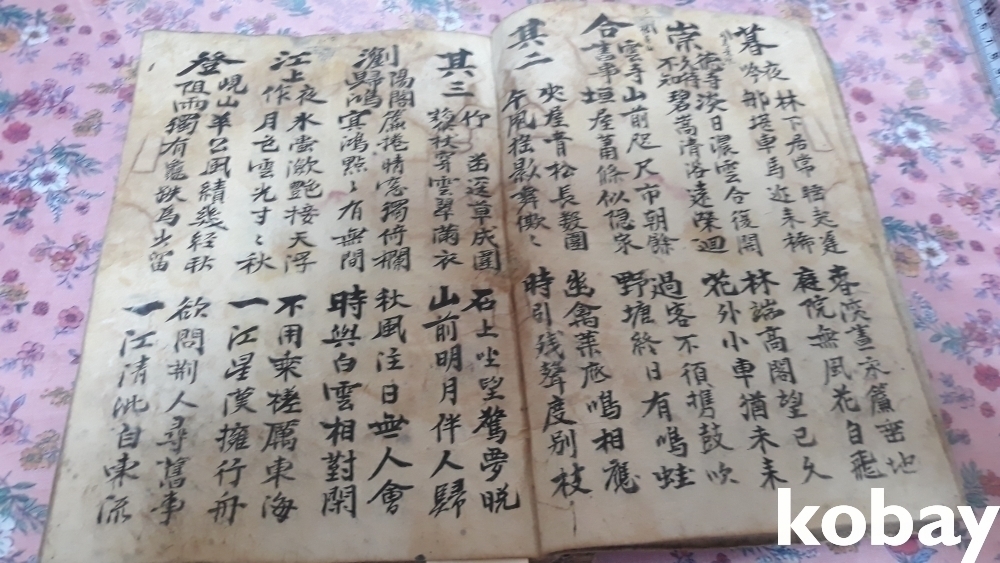 暮夜 林下居常睡起遲 春深晝永簾垂地
吟 那堪車馬近來稀 庭院無風花自飛
崇德寺 淡日濃雲合復開 林端高閣望已久
久待不 碧嵩清洛遠縈迴 花外小車猶未來
合雲 山前咫尺市朝餘 過客不須攜鼓吹
書事 垣屋蕭條似隱家 野塘終日有鳴蛙
其二 夾屋青松長數圍 幽禽葉底鳴相應
午風搖影舞僛〻 時引殘聲度別枝
其三 幽逕草成圍 石上坐望驚夢晚
藜杖穿雲翠滿衣 山前明月伴人歸
瀏陽閣 簾捲晴空獨倚欄 秋風注日無人會
歸鴻 冥鴻點〻有無間 時與白雲相對閑
江上夜 氷壺瀲艷接天浮 不用乘槎厲東海
作 月色雲光寸〻秋 一江星漢擁行舟
登峴山 羊公風績幾經秋 欲問荊人尋舊事
阻雨 獨有龜趺為此留 一江清沘自東流
kobay